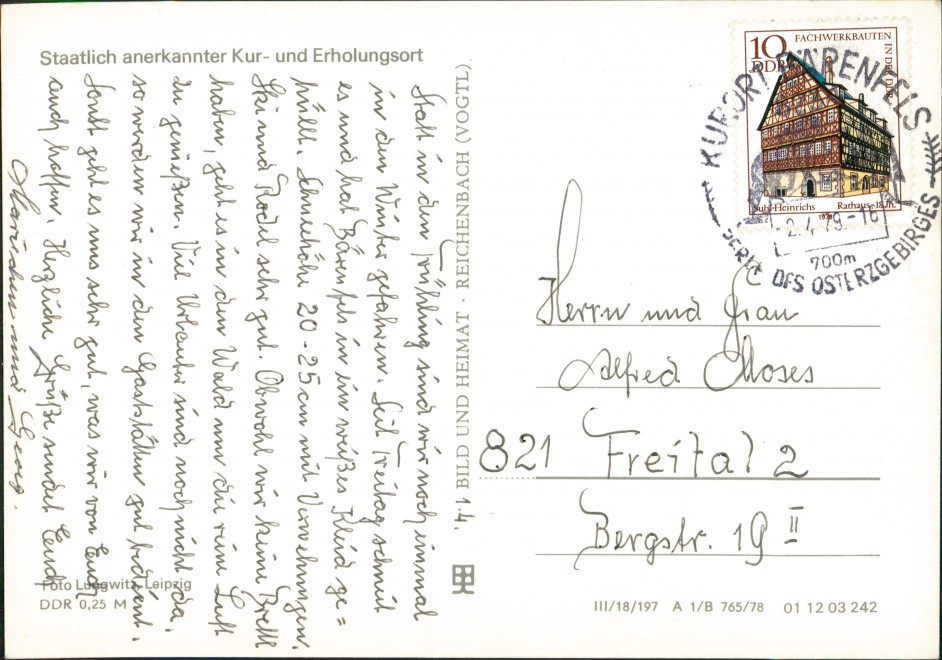 Staatlich anerkannter Kur- und Erholungsort
Statt in den Frühling sind wir noch einmal
in den Winter gefahren. Seit Freitag schneit
es und hat Bärenfels in ein weißes Kleid ge=
hüllt. Schneehöhe 20-25cm mit Verwehungen.
Ski und Rodel sehr gut. Obwohl wir keine Brettl
haben, geht es in den Wald um die reine Luft
zu genießen. Viel Urlauber sind noch nicht da,
so werden wir in den Gaststätten gut bedient.
Sonst geht es uns sehr gut, was wir von Euch
auch hoffen. Herzliche Grüße sendet Euch
und
1.4.
BILD UND HEIMAT · REICHENBACH (VOGTL)
10 FACHWERKBAUTEN
DDR
IN DER DDR
Suhl-Heinrichs Rathaus-18.Jh.
1978
KURORT BÄRENFELS
-2.4.79-16
700m
PERLE DES OSTERZGEBIRGES
Herrn und Frau
Alfred Moses
821 Freital 2
Bergstr. 19 II
Foto Lungwitz, Leipzig
DDR 0,25 M
III/18/197 A 1/B 765/78 01 12 03 242